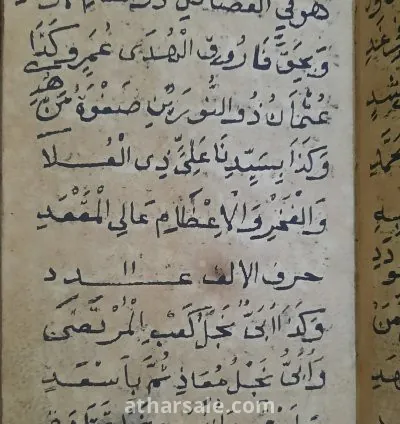 هو في الفضا
وَبِحَقِّ فَارُوقِ الْهُدَى عُمَرٍ وَكَذَا
عُثْمَانُ ذُو النُّورَيْنِ صَفْوَةُ مَنْ هُدِ
وَكَذَا بِسَيِّدِنَا عَلِيٍّ ذِى الْعُـــلَا
وَالْفَخْرِ وَالْاِعْظَامِ عَالِى الْمَقْعَدِ
حرف الالف عـــدد
وَكَذَا اُبَىُّ نَجْلُ كَعْبِ الْمُرْتَضَى
وَاُبَىُّ نَجْلُ مُعَاذِ ثُمَّ بِاَسْعَدٍ
atharsale.com